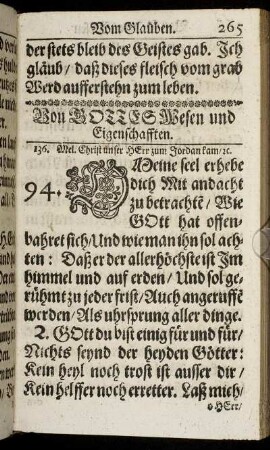 Vom Glauben. 265
der stets bleib des Geistes gab. Ich
gläub / daß dieses fleisch vom grab
Werd aufferstehn zum leben.
Von GOTTES Wesen und
Eigenschafften.
136. Mel. Christ unser HErr zum Jordan kam/ꝛc.
94. Meine seel erhebe
dich Mit andacht
zu betrachtē / Wie
GOtt hat offen-
bahret sich/Und wie man ihn sol ach-
ten: Daß er der allerhöchste ist Im
himmel und auf erden / Und sol ge-
rühmt zu jeder frist / Auch angeruffē
werden / Als uhrsprung aller dinge.
2. GOtt du bist einig für und für/
Nichts seynd der heyden Götter:
Kein heyl noch trost ist ausser dir /
Kein helffer noch erretter. Laß mich /
HErr/